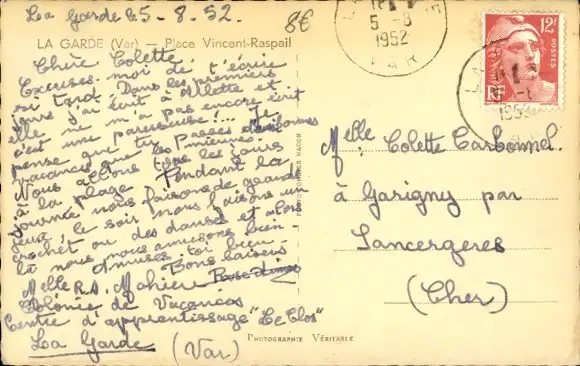 La Garde 5-8.52.
8€
LA GARDE (Var) — Place Vincent-Raspail
Chère Colette.
Excuses-moi de t'écrire
si tard. Dans les premiers
jours j'ai écrit à Arlette et
elle ne m'a pas encore écrit
c'est une paresseuse!... Je
pense que tu passes d'aussi bonnes
vacances que les miennes.
Nous allons tous les jours
à la plage. Pendant la
journée nous faisons de grands
jeux, le soir nous faisons un
crochet ou des danses et alors
là nous nous amusons bien
Amuses-toi bien
Bons baisers
Melle R.A. Mahieu
Colonie de Vacances
Centre d'apprentissage "Le Clos"
La Garde (Var)
PHOTOGRAPHIE VÉRITABLE
5-8
1952
VAR
12F
POSTES
RF
Melle Colette Carbonnel.
à Garigny par
Sancergeres
(Cher)